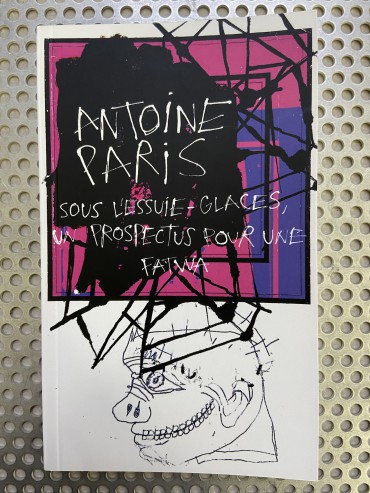 ANTOINE
PARIS
SOUS L'ESSUIE-GLACES,
UN PROSPECTUS POUR UNE
FATWA